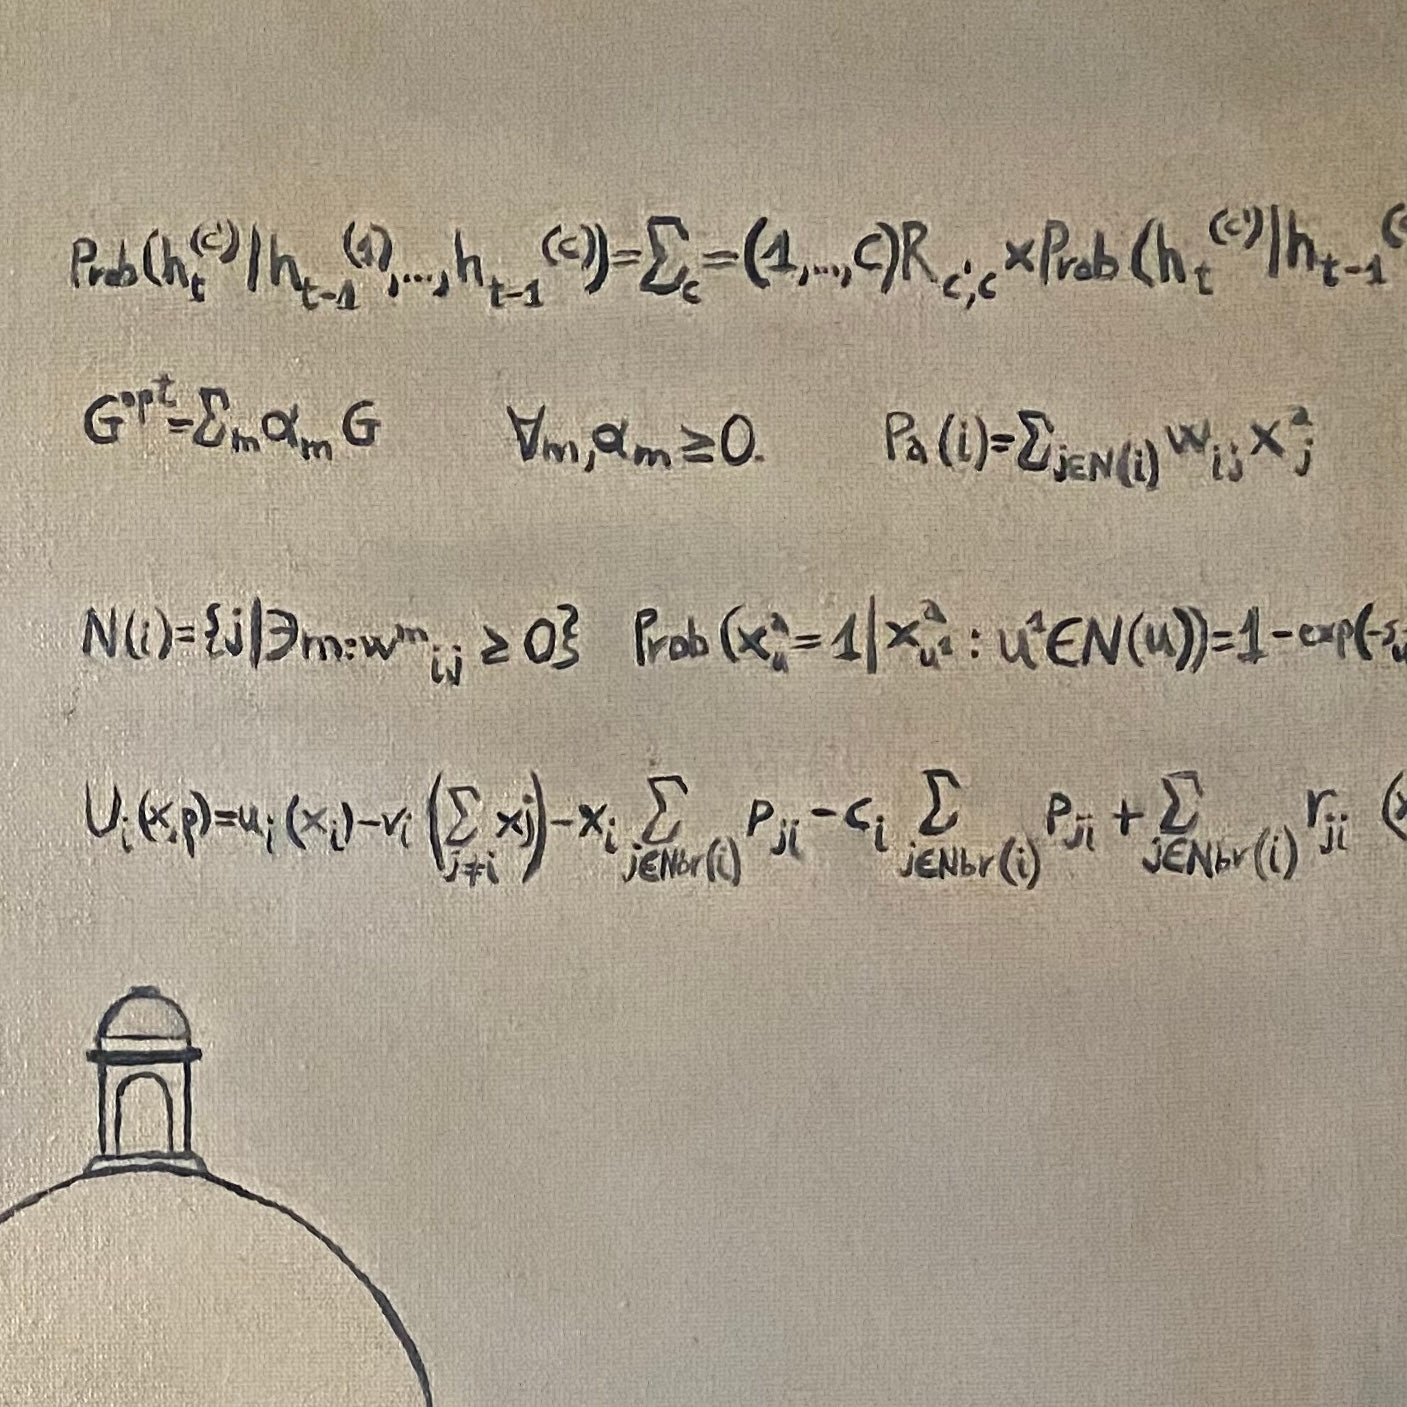 Prob(h_t^(c')|h_{t-1}^(1),...,h_{t-1}^(c))=∑_c=(1,...,C)R_{c',c}×Prob(h_t^(c')|h_{t-1}^(
G^opt=∑_m α_m G ∀_m,α_m≥0. P_a(i)=∑_{j∈N(i)} w_{ij} x_j^a
N(i)={j|∃m:w^m_{ij} ≥ 0} Prob(x_u^a=1|x_{u^1}^a : u^1∈N(u))=1-exp(-s_u
U_i(x,p)=u_i(x_i)-v_i(∑_{j≠i} xj)-x_i ∑_{j∈Nbr(i)} p_{ji} - c_i ∑_{j∈Nbr(i)} p_{ji} + ∑_{j∈Nbr(i)} r_{ji} (